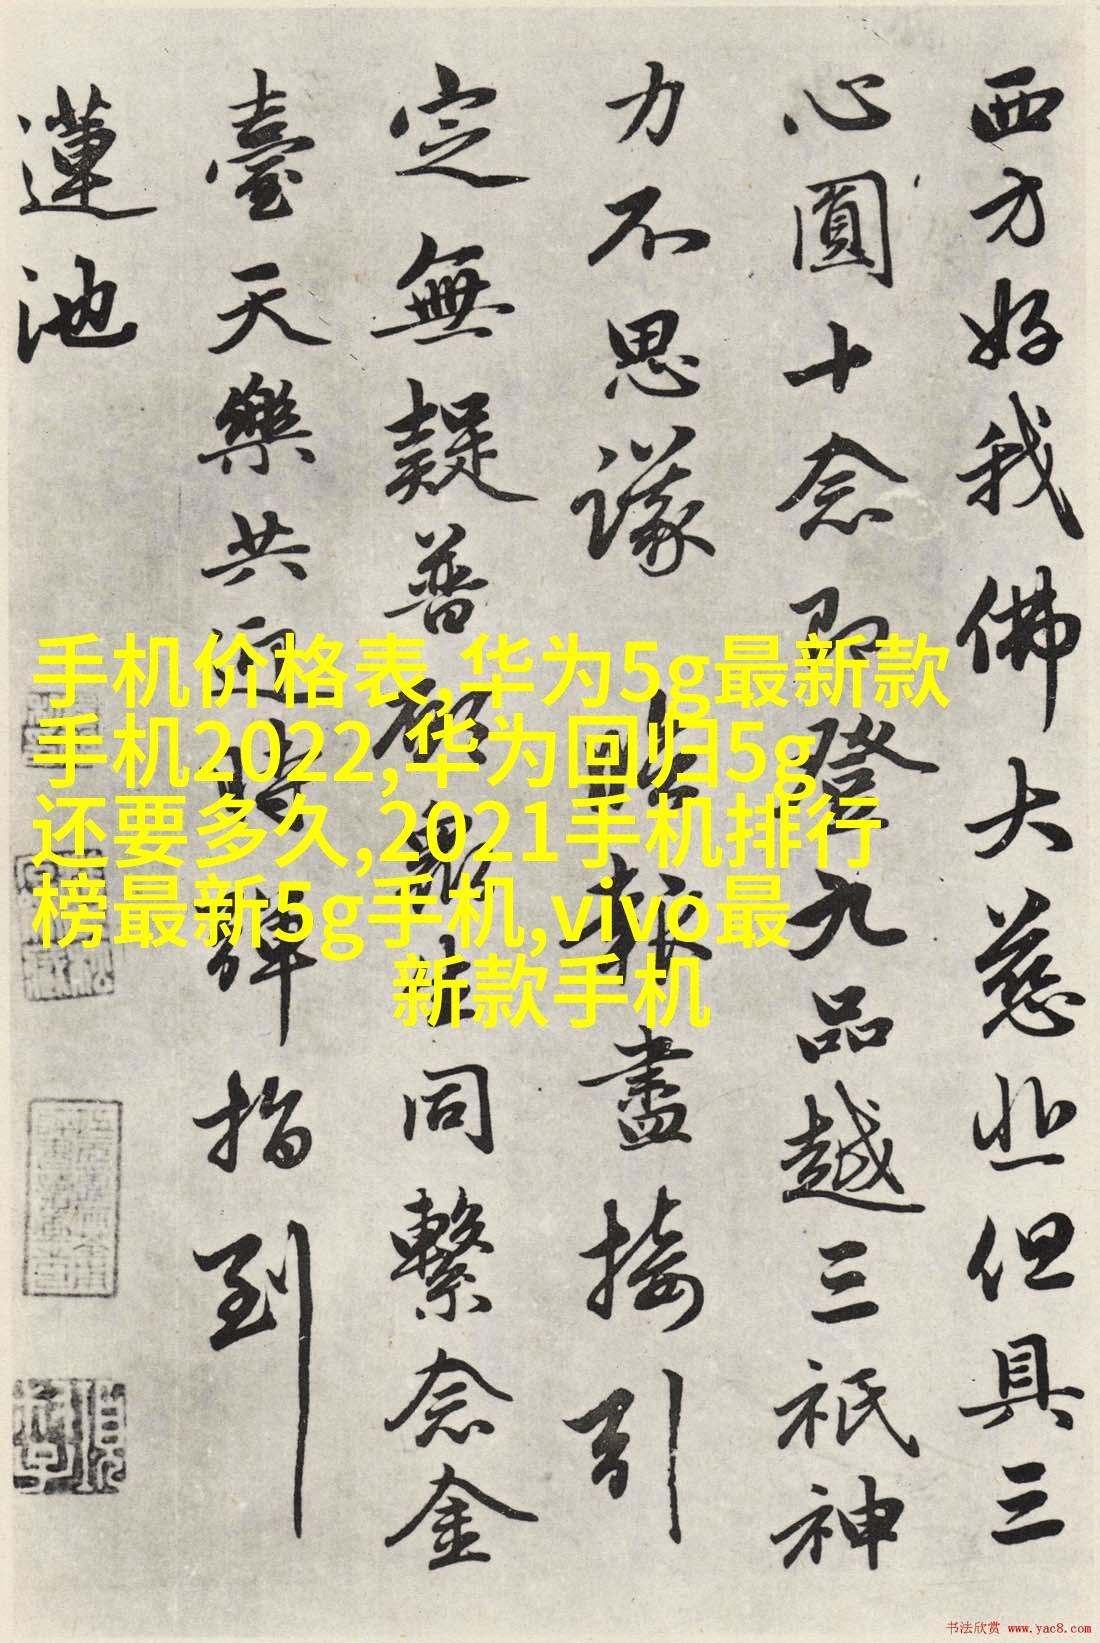 西方好我佛大慈悲但具三
心圓十念即登九品越三祇神
力不思議報盡接引
定無疑普願眾生同繫念金
臺天樂共迎時彈指到
蓮池
手机价格表,华为5g最新款
手机2022,华为回归5g
还要多久,2021手机排行
榜最新5g手机,vivo最
新款手机
书法欣赏 www.yac8.com